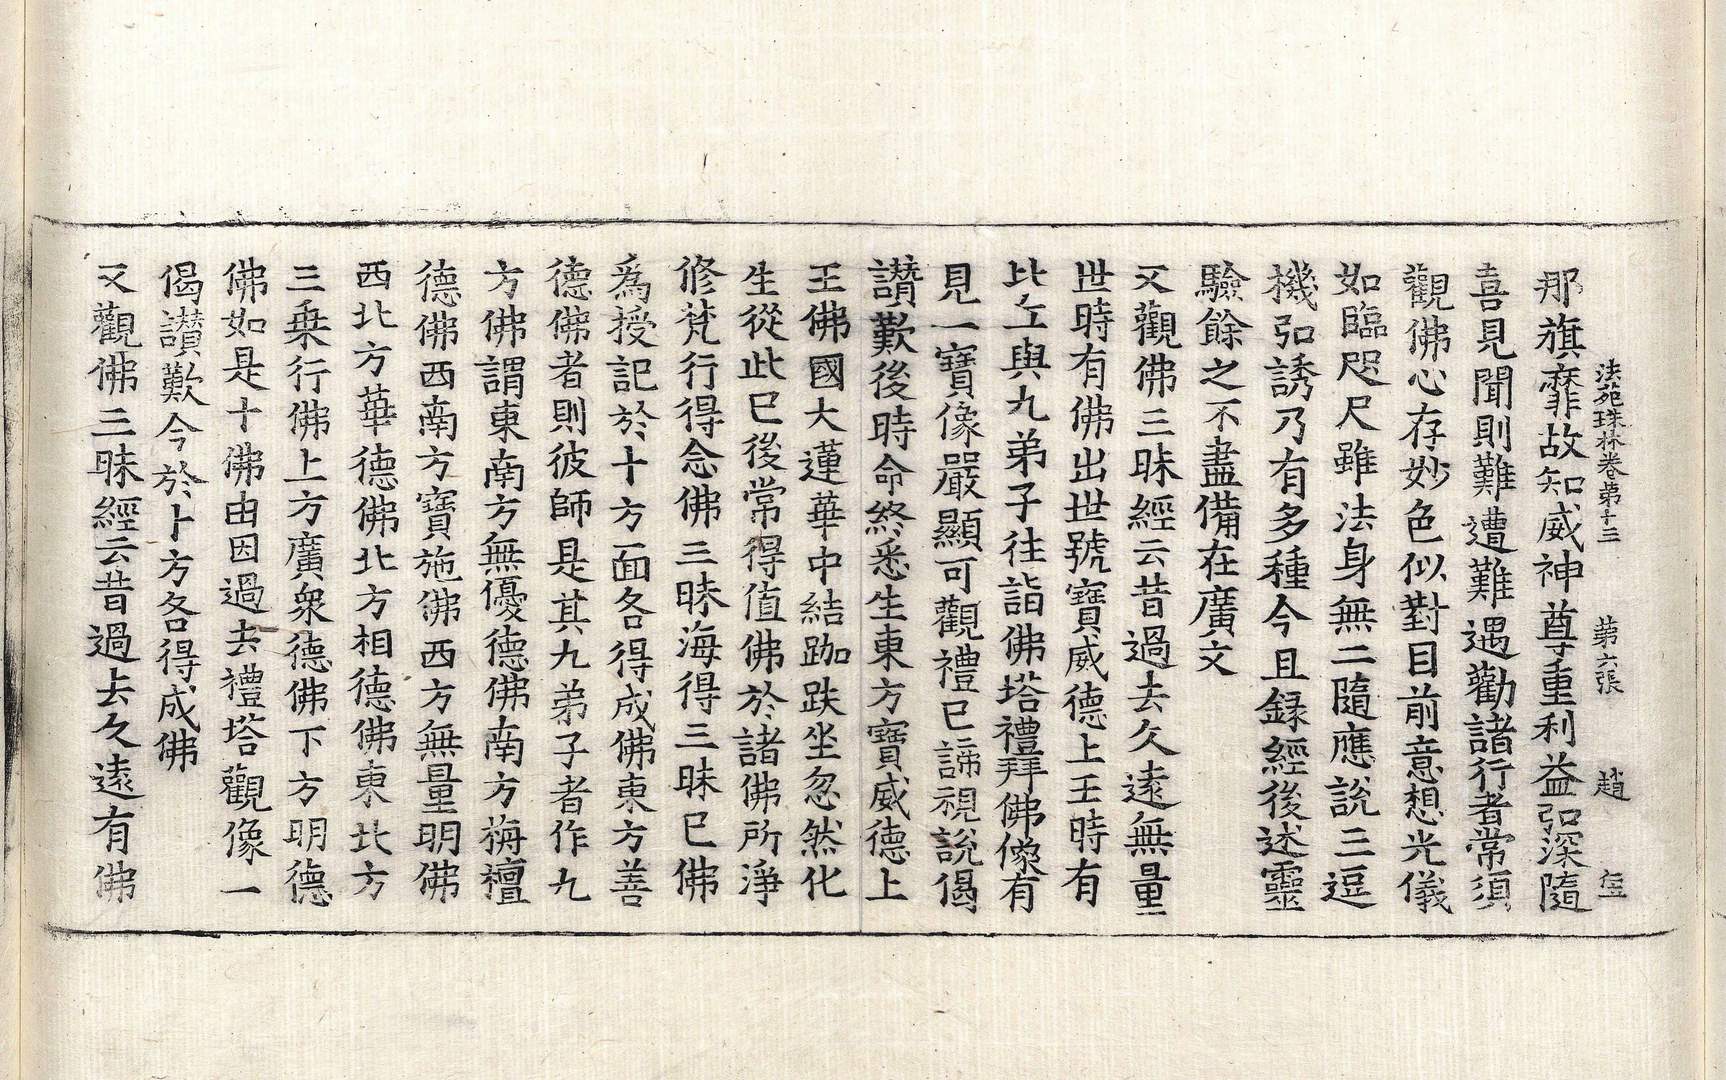 法苑珠林卷第十三 第六張 趙
那旗靡故知威神尊重利益弘深隨
喜見聞則難遭難遇勸諸行者常須
觀佛心存妙色似對目前意想光儀
如臨咫尺雖法身無二隨應說三逗
機弘誘乃有多種今且録經後述靈
驗餘之不盡備在廣文
又觀佛三昧經云昔過去久遠無量
世時有佛出世號寶威德上王時有
比丘與九弟子往詣佛塔禮拜佛像有
見一寶像嚴顯可觀禮已諦視說偈
讃歎後時命終悉生東方寶威德上
王佛國大蓮華中結跏趺坐忽然化
生從此已後常得值佛於諸佛所淨
修梵行得念佛三昧海得三昧已佛
為授記於十方面各得成佛東方善
德佛者則彼師是其九弟子者作九
方佛謂東南方無憂德佛南方栴檀
德佛西南方寶施佛西方無量明佛
西北方華德佛北方相德佛東北方
三乗行佛上方廣衆德佛下方明德
佛如是十佛由因過去禮塔觀像一
偈讃歎今於十方各得成佛
又觀佛三昧經云昔過去久遠有佛